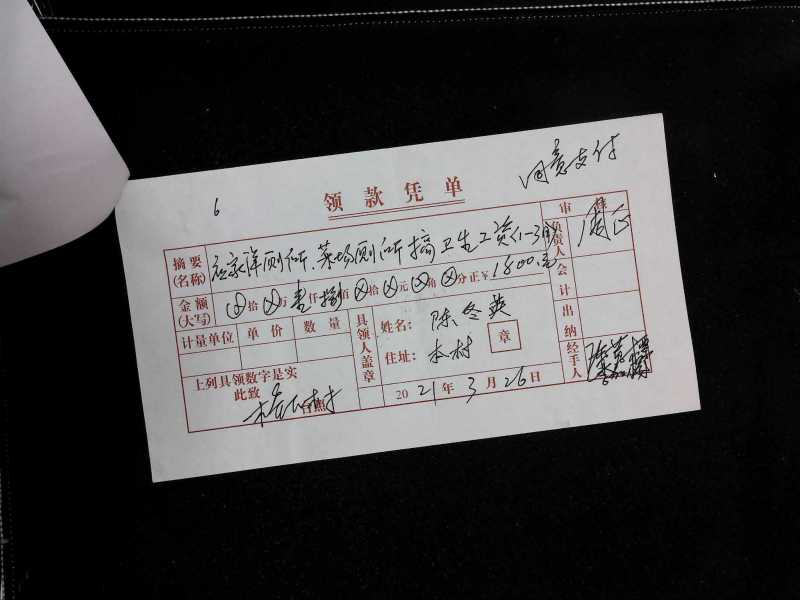 6
同意支付
领款凭单
审核
摘要(名称) 厕所、菜场厕所搞卫生工资(1-3月)
负责人 周正
金额(大写) ⊗拾⊗万壹仟捌佰⊗拾⊗元⊗角⊗分正¥1800.元
会计
计量单位 单价 数量
具领人盖章
姓名: 陈冬英
住址: 本村
章
出纳
上列具领数字是实
此致
台照
2021年3月26日
经手人